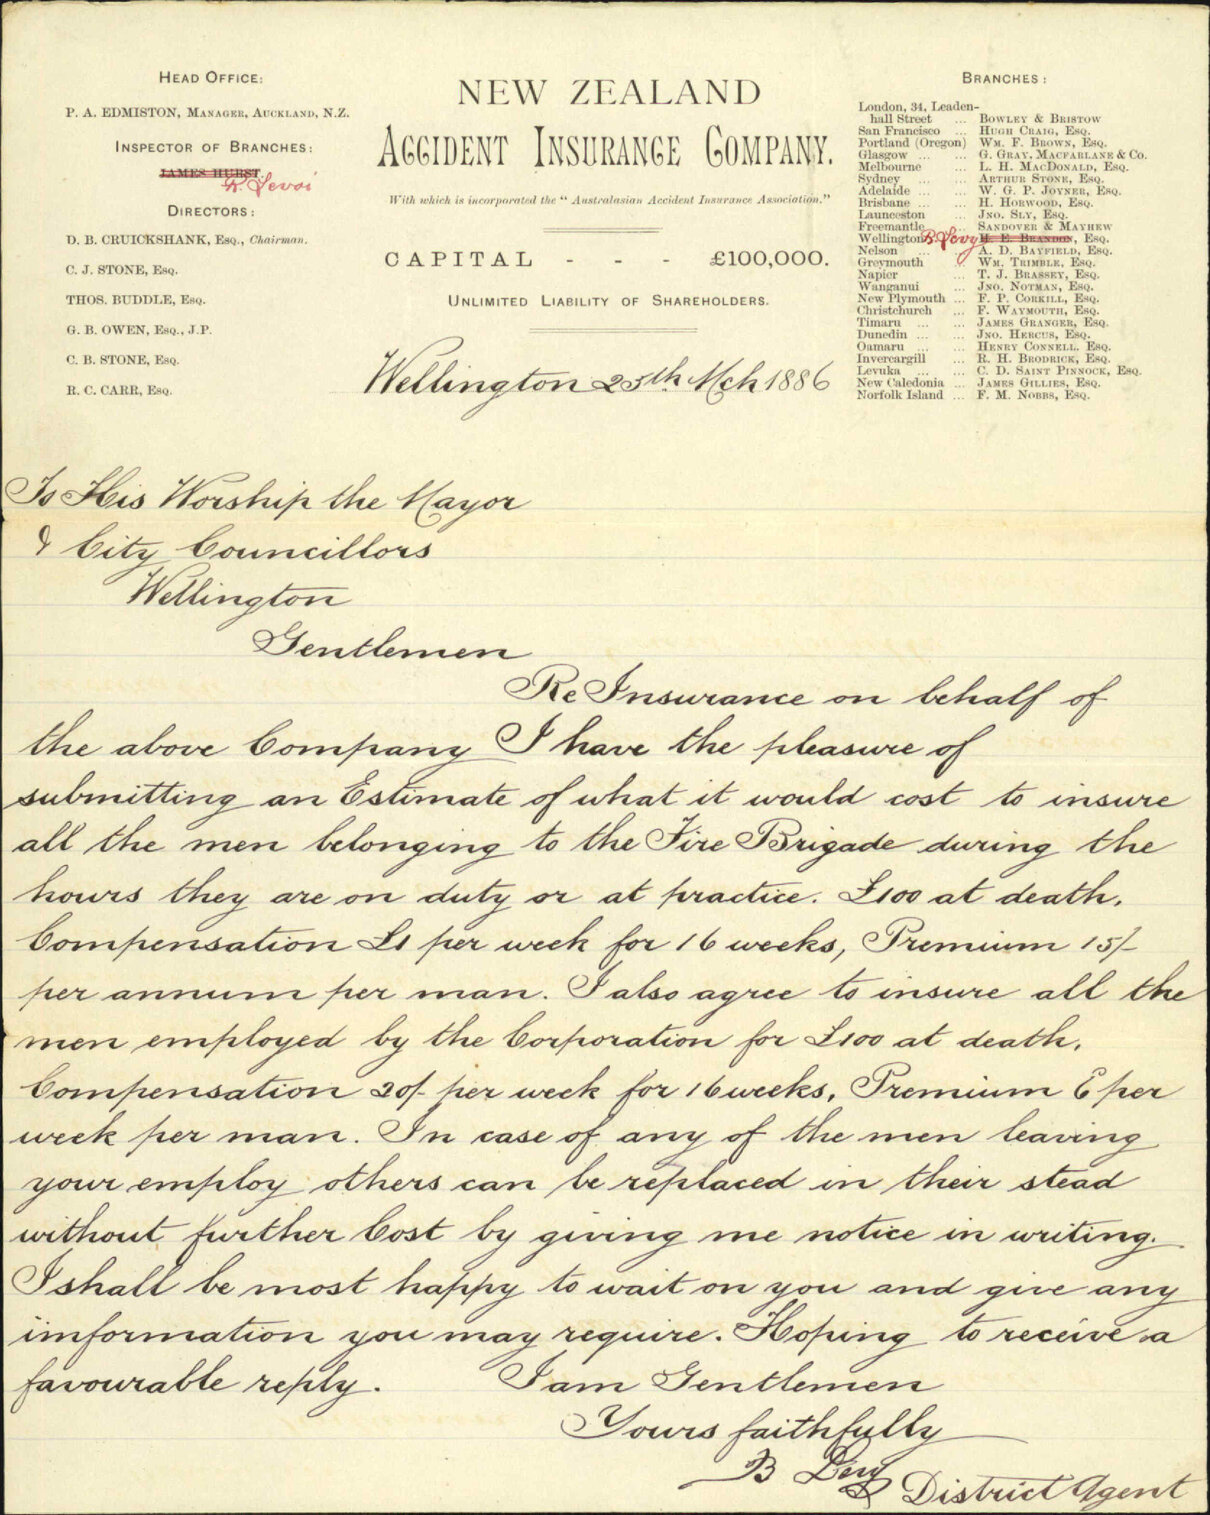 HEAD OFFICE:
P. A. EDMISTON, MANAGER, AUCKLAND, N.Z.
INSPECTOR OF BRANCHES:
JAMES HURST.
DIRECTORS:
D. B. CRUICKSHANK, ESQ., Chairman.
C. J. STONE, ESQ.
THOS. BUDDLE, ESQ.
G. B. OWEN, ESQ., J.P.
C. B. STONE, ESQ.
R. C. CARR, ESQ.
NEW ZEALAND
ACCIDENT INSURANCE COMPANY.
With which is incorporated the "Australasian Accident Insurance Association."
CAPITAL - - - £100,000.
UNLIMITED LIABILITY OF SHAREHOLDERS.
Wellington 25th Mch 1886
BRANCHES:
London, 34, Leaden-
hall Street ... BOWLEY & BRISTOW
San Francisco ... HUGH CRAIG, ESQ.
Portland (Oregon) WM. F. BROWN, ESQ.
Glasgow ... ... G. GRAY, MACFARLANE & CO.
Melbourne ... L. H. MACDONALD, ESQ.
Sydney ... ... ARTHUR STONE, ESQ.
Adelaide ... ... W. G. P. JOYNER, ESQ.
Brisbane ... ... H. HORWOOD, ESQ.
Launceston ... JNO. SLY, ESQ.
Freemantle ... SANDOVER & MAYHEW
Wellington B. Levy H. E. BRANDON, ESQ.
Nelson ... A. D. BAYFIELD, ESQ.
Greymouth ... WM. TRIMBLE, ESQ.
Napier ... T. J. BRASSEY, ESQ.
Wanganui ... JNO. NOTMAN, ESQ.
New Plymouth ... F. P. CORKILL, ESQ.
Christchurch ... F. WAYMOUTH, ESQ.
Timaru ... ... JAMES GRANGER, ESQ.
Dunedin ... ... JNO. HERCUS, ESQ.
Oamaru ... ... HENRY CONNELL, ESQ.
Invercargill ... R. H. BRODRICK, ESQ.
Levuka ... ... C. D. SAINT PINNOCK, ESQ.
New Caledonia ... JAMES GILLIES, ESQ.
Norfolk Island ... F. M. NOBBS, ESQ.
To His Worship the Mayor
& City Councillors
Wellington
Gentlemen
Re Insurance on behalf of
the above Company I have the pleasure of
submitting an Estimate of what it would cost to insure
all the men belonging to the Fire Brigade during the
hours they are on duty or at practice. £100 at death.
Compensation £1 per week for 16 weeks, Premium 15/-
per annum per man. I also agree to insure all the
men employed by the Corporation for £100 at death.
Compensation 20/- per week for 16 weeks, Premium 6 per
week per man. In case of any of the men leaving
your employ others can be replaced in their stead
without further Cost by giving me notice in writing.
I shall be most happy to wait on you and give any
imformation you may require. Hoping to receive a
favourable reply. I am Gentlemen
Yours faithfully
B Levy District Agent